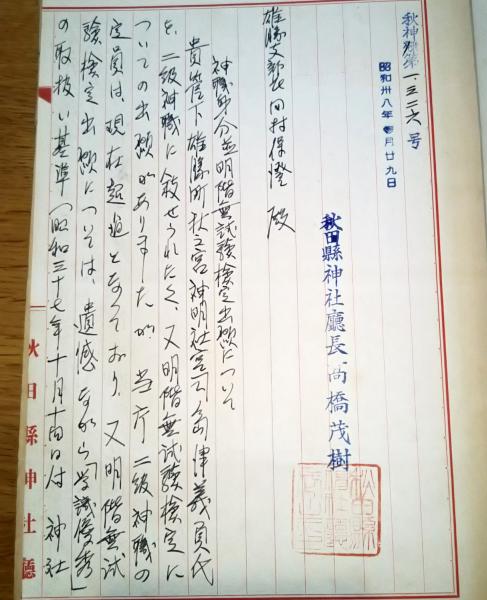 秋神縣第一、三二六号
昭和卅八年 月廿九日
秋田縣神社廳長 高橋茂樹
雄勝支部長田村保澄 殿
神職身分並明階無試験検定出願について
貴管下雄勝町秋之宮神明社宮司 津義員氏
を、二級神職に敍せられたく、又明階無試験検定に
ついての出願がありましたが、当庁二級神職の
定員は、現在超過となっており、又明階無試
験検定出願については、遺憾ながら「学識優秀」
の取扱い基準(昭和三十七年十月十四日付 神社
秋田縣神社廳